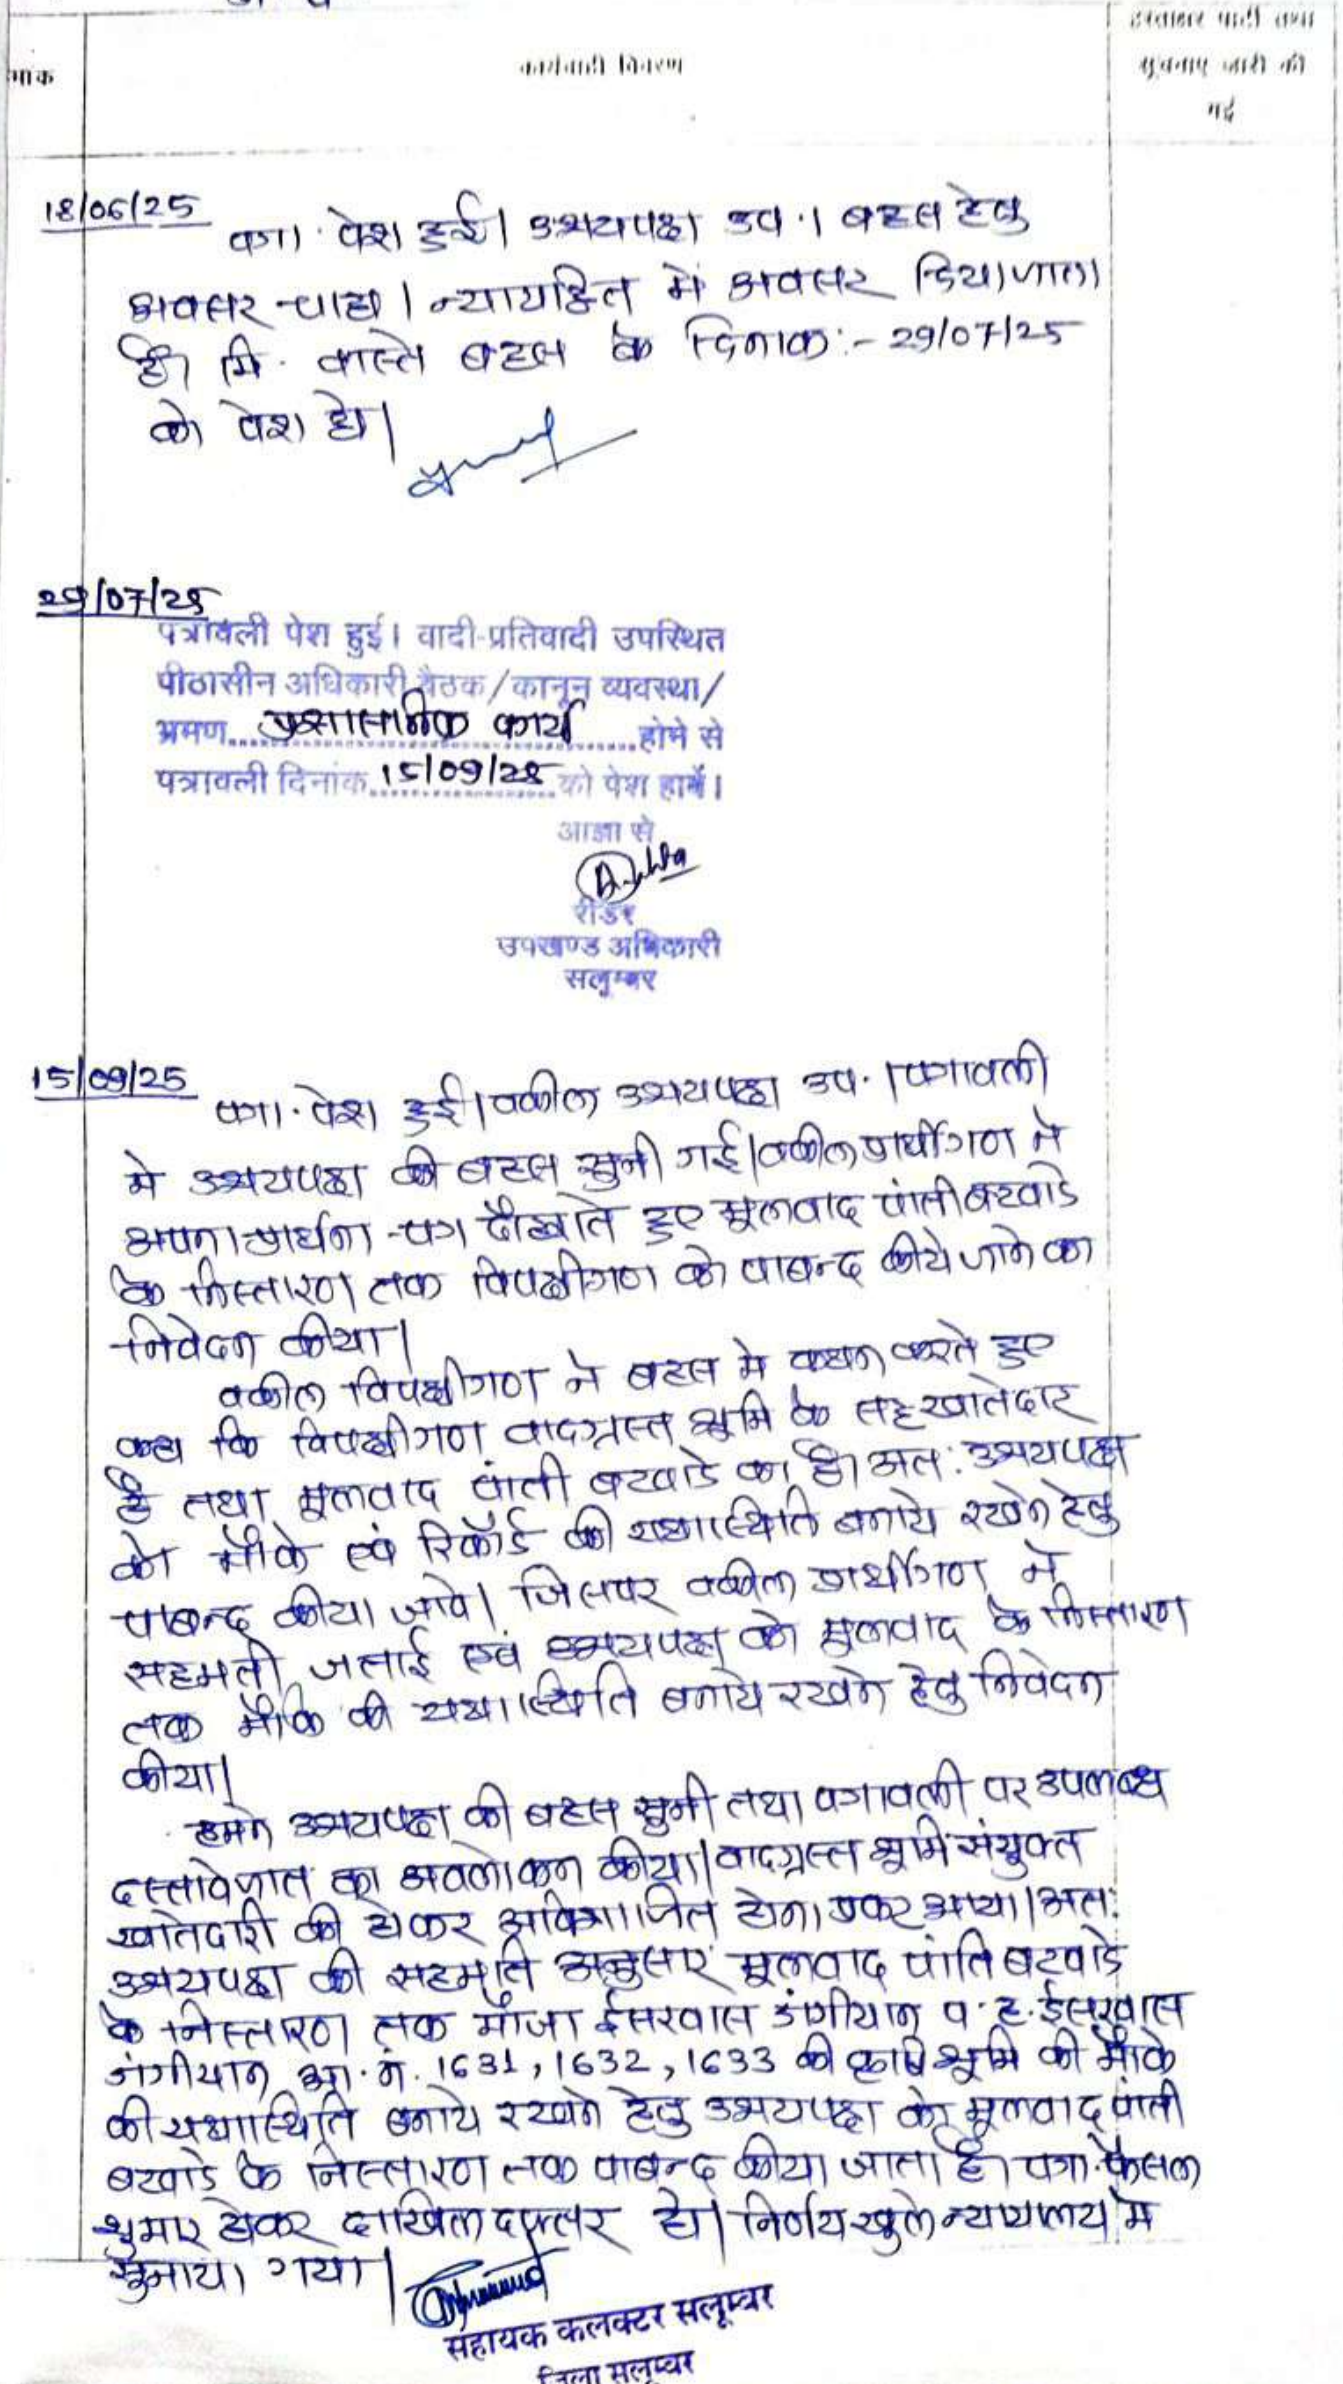 हस्ताक्षर पार्टी तथा
मांक
कार्यवाही विवरण
सूचनाए जारी की
गई
18/06/25
पत्रा. पेश हुई। उभयपक्ष उप.। बहस हेतु
अवसर चाहा। न्यायहित में अवसर दिया जाता
है। मि. वास्ते बहस के दिनाक:- 29/07/25
को पेश हो।
29/07/25
पत्रावली पेश हुई। वादी-प्रतिवादी उपस्थित
पीठासीन अधिकारी बैठक/कानून व्यवस्था/
भ्रमण....प्रशासनिक कार्य....होने से
पत्रावली दिनांक..15/09/25..को पेश हावें।
आज्ञा से
रीडर
उपखण्ड अधिकारी
सलूम्बर
15/09/25
पत्रा. पेश हुई। वकील उभयपक्ष उप.। पत्रावली
मे उभयपक्ष की बहस सुनी गई। वकील प्रार्थीगण ने
अपना प्रार्थना-पत्र दौखाते हुए मूलवाद पांती बटवाडे
के निस्तारण तक विपक्षीगण को पाबन्द कीये जाने का
निवेदन कीया।
वकील विपक्षीगण ने बहस मे कथन करते हुए
कहा कि विपक्षीगण वादग्रस्त भूमि के सहखातेदार
है तथा मूलवाद पांती बटवाडे का है। अत: उभयपक्ष
को मौके एवं रिकॉर्ड की यथास्थिति बनाये रखने हेतु
पाबन्द कीया जावे। जिसपर वकील प्रार्थीगण ने
सहमती जताई एवं उभयपक्ष को मुलवाद के निस्तारण
तक मौके की यथास्थिति बनाये रखने हेतु निवेदन
कीया।
हमने उभयपक्ष की बहस सुनी तथा पत्रावली पर उपलब्ध
दस्तावेजात का अवलोकन कीया। वादग्रस्त भूमि संयुक्त
खातेदारी की होकर अविभाजित होना प्रकट आया। अत:
उभयपक्ष की सहमति अनुसार मूलवाद पांति बटवाडे
के निस्तारण तक मौजा ईसरवास जंगीयान प.ह. ईसरवास
जंगीयान आ.न. 1631, 1632, 1633 की कृषि भूमि की मौके
की यथास्थिति बनाये रखने हेतु उभयपक्ष को मूलवाद पांती
बटवाडे के निस्तारण तक पाबन्द कीया जाता है। पत्रा. फैसल
शुमार होकर दाखिल दफ्तर हो। निर्णय खुले न्यायालय मे
सुनाया गया।
सहायक कलक्टर सलूम्बर
जिला सलूम्बर